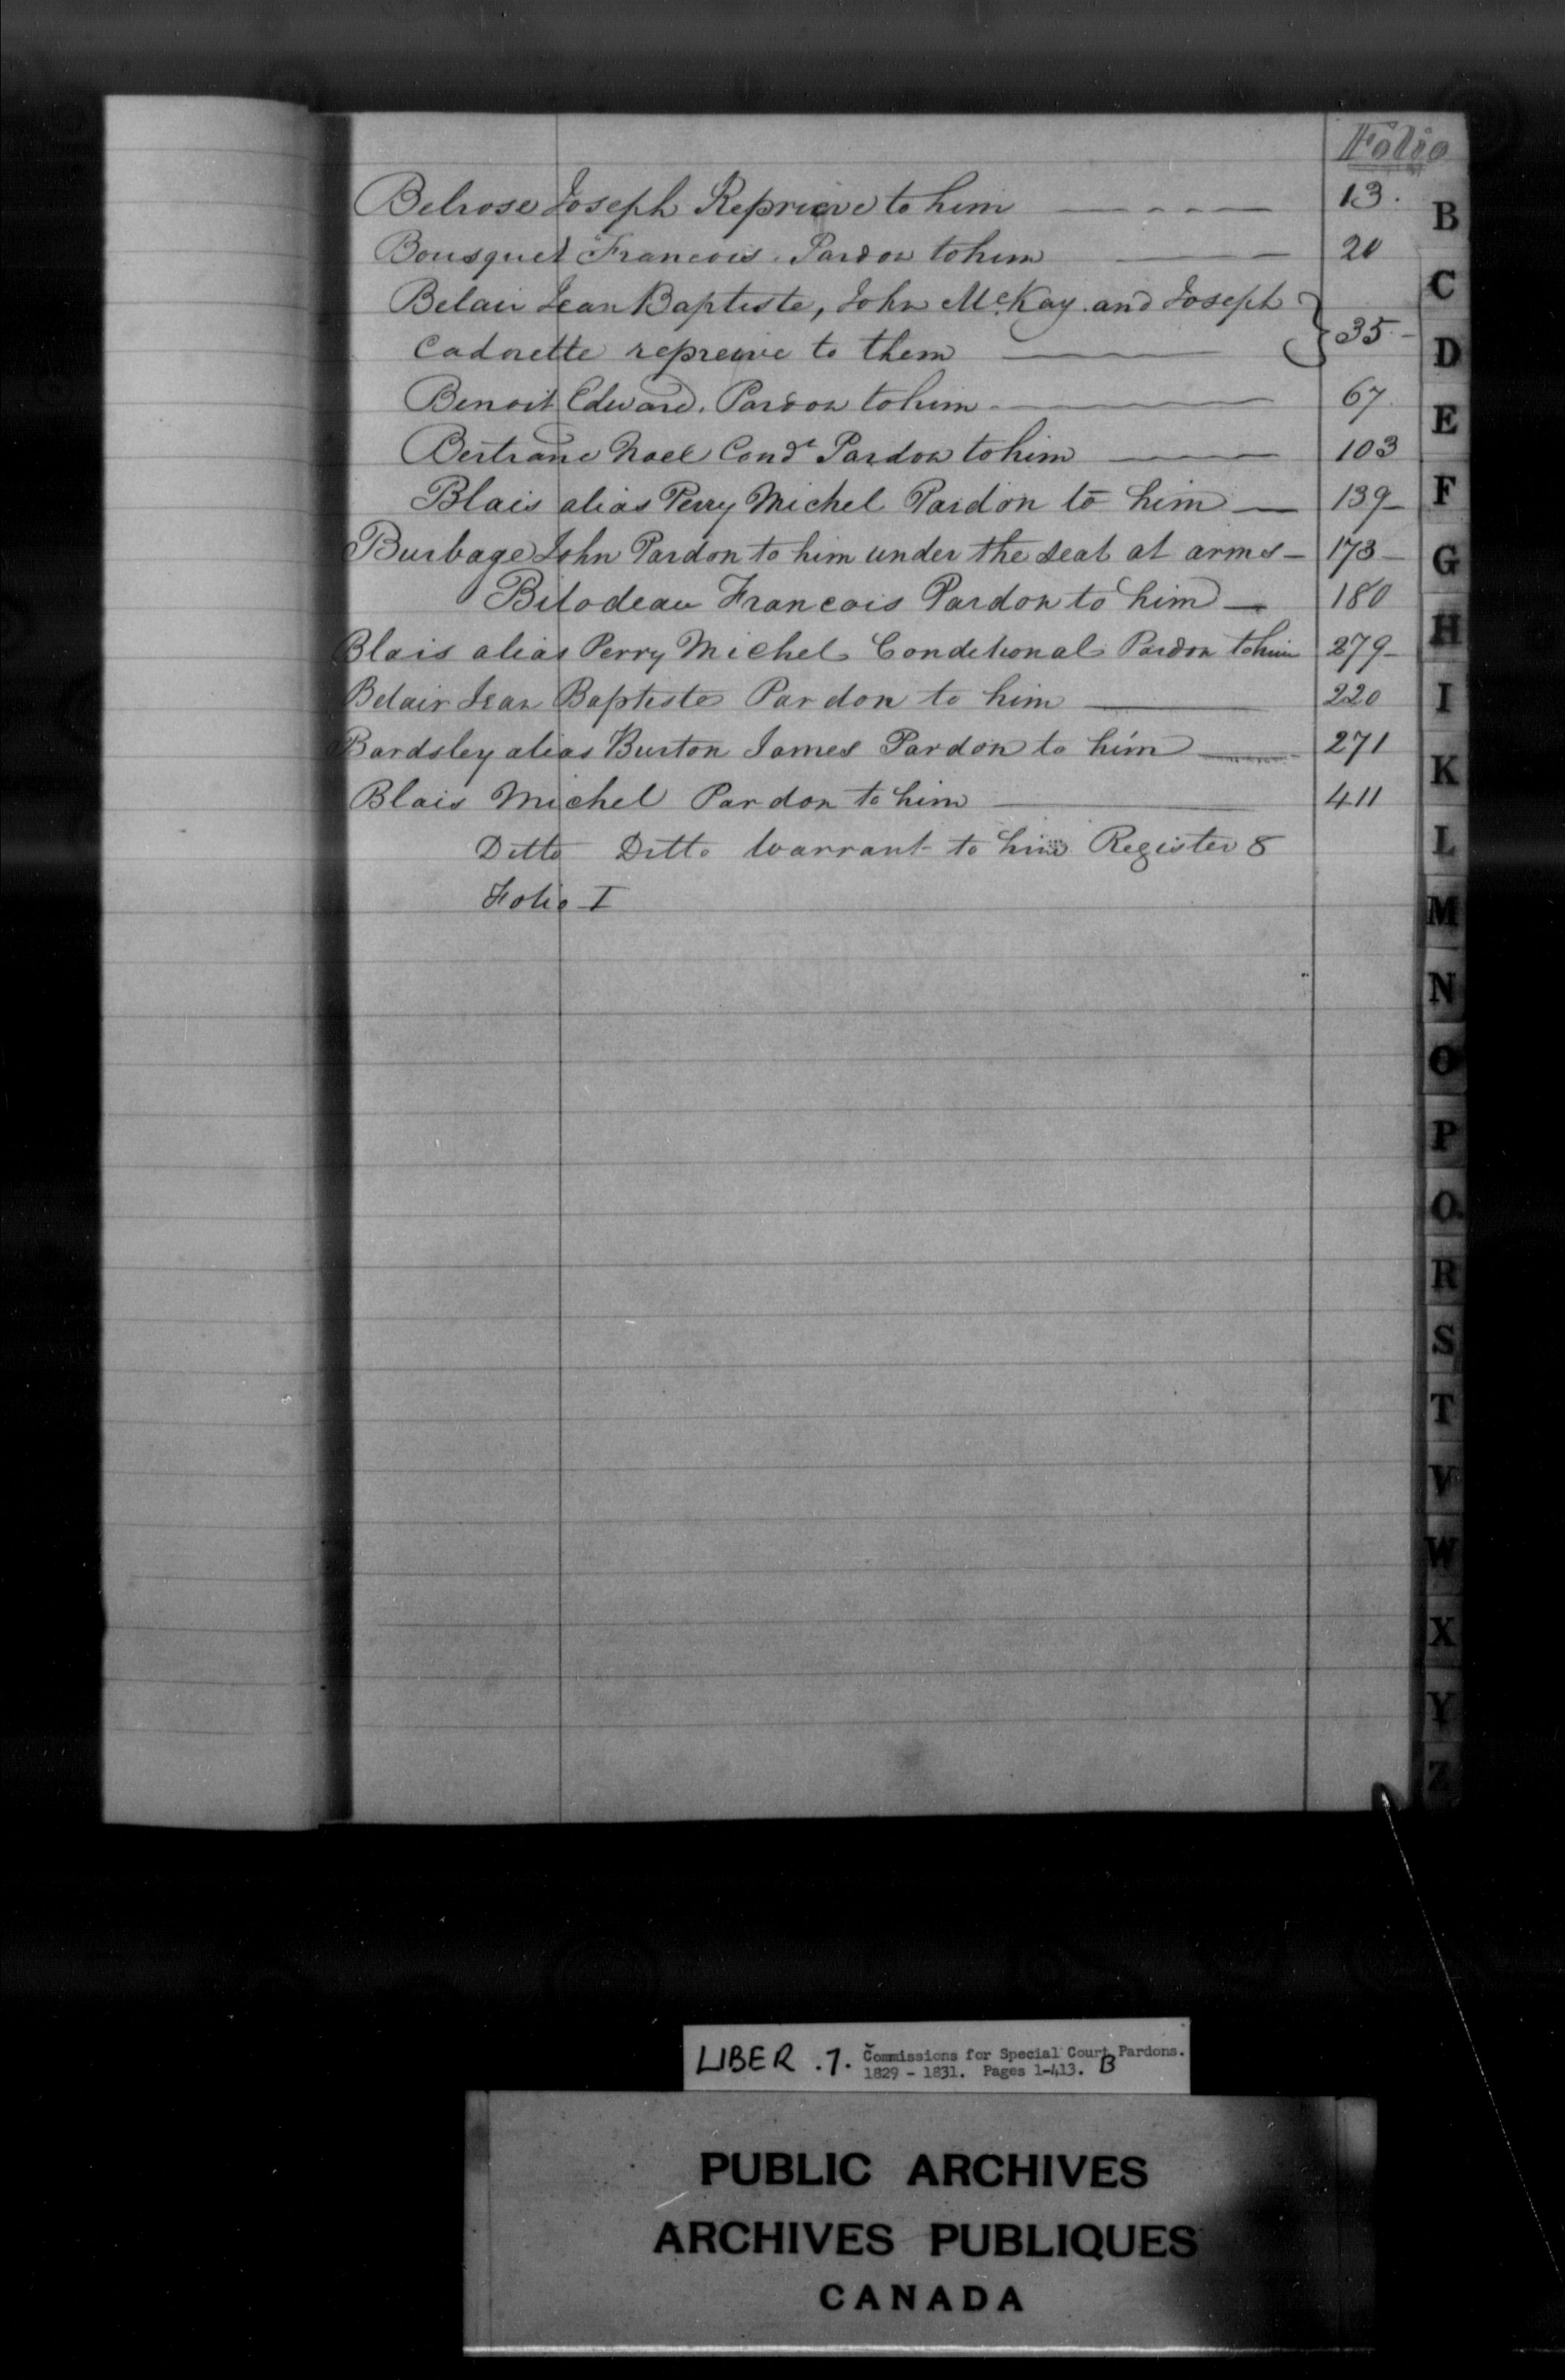 Folio
Belrose Joseph Reprieve to him — - - — 13.
Bousquet Francois. Pardon to him — 20
Belair Jean Baptiste, John McKay and Joseph
Cadorette repreive to them — } 35
Benoit Edward. Pardon to him — 67
Bertrand Noel Condt Pardon to him — 103
Blais alias Perry Michel Pardon to him — 139
Burbage John Pardon to him under the seal at arms — 173
Bilodeau Francois Pardon to him — 180
Blais alias Perry Michel Conditional Pardon to him 279
Belair Jean Baptiste Pardon to him — 220
Bardsley alias Burton James Pardon to him — 271
Blais Michel Pardon to him — 411
Ditto Ditto Warrant to him Register 8
Folio I
B
C
D
E
F
G
H
I
K
L
M
N
O
P
Q
R
S
T
V
W
X
Y
Z
LIBER .7. Commissions for Special Court Pardons.
1829 - 1831. Pages 1-413. B
PUBLIC ARCHIVES
ARCHIVES PUBLIQUES
CANADA